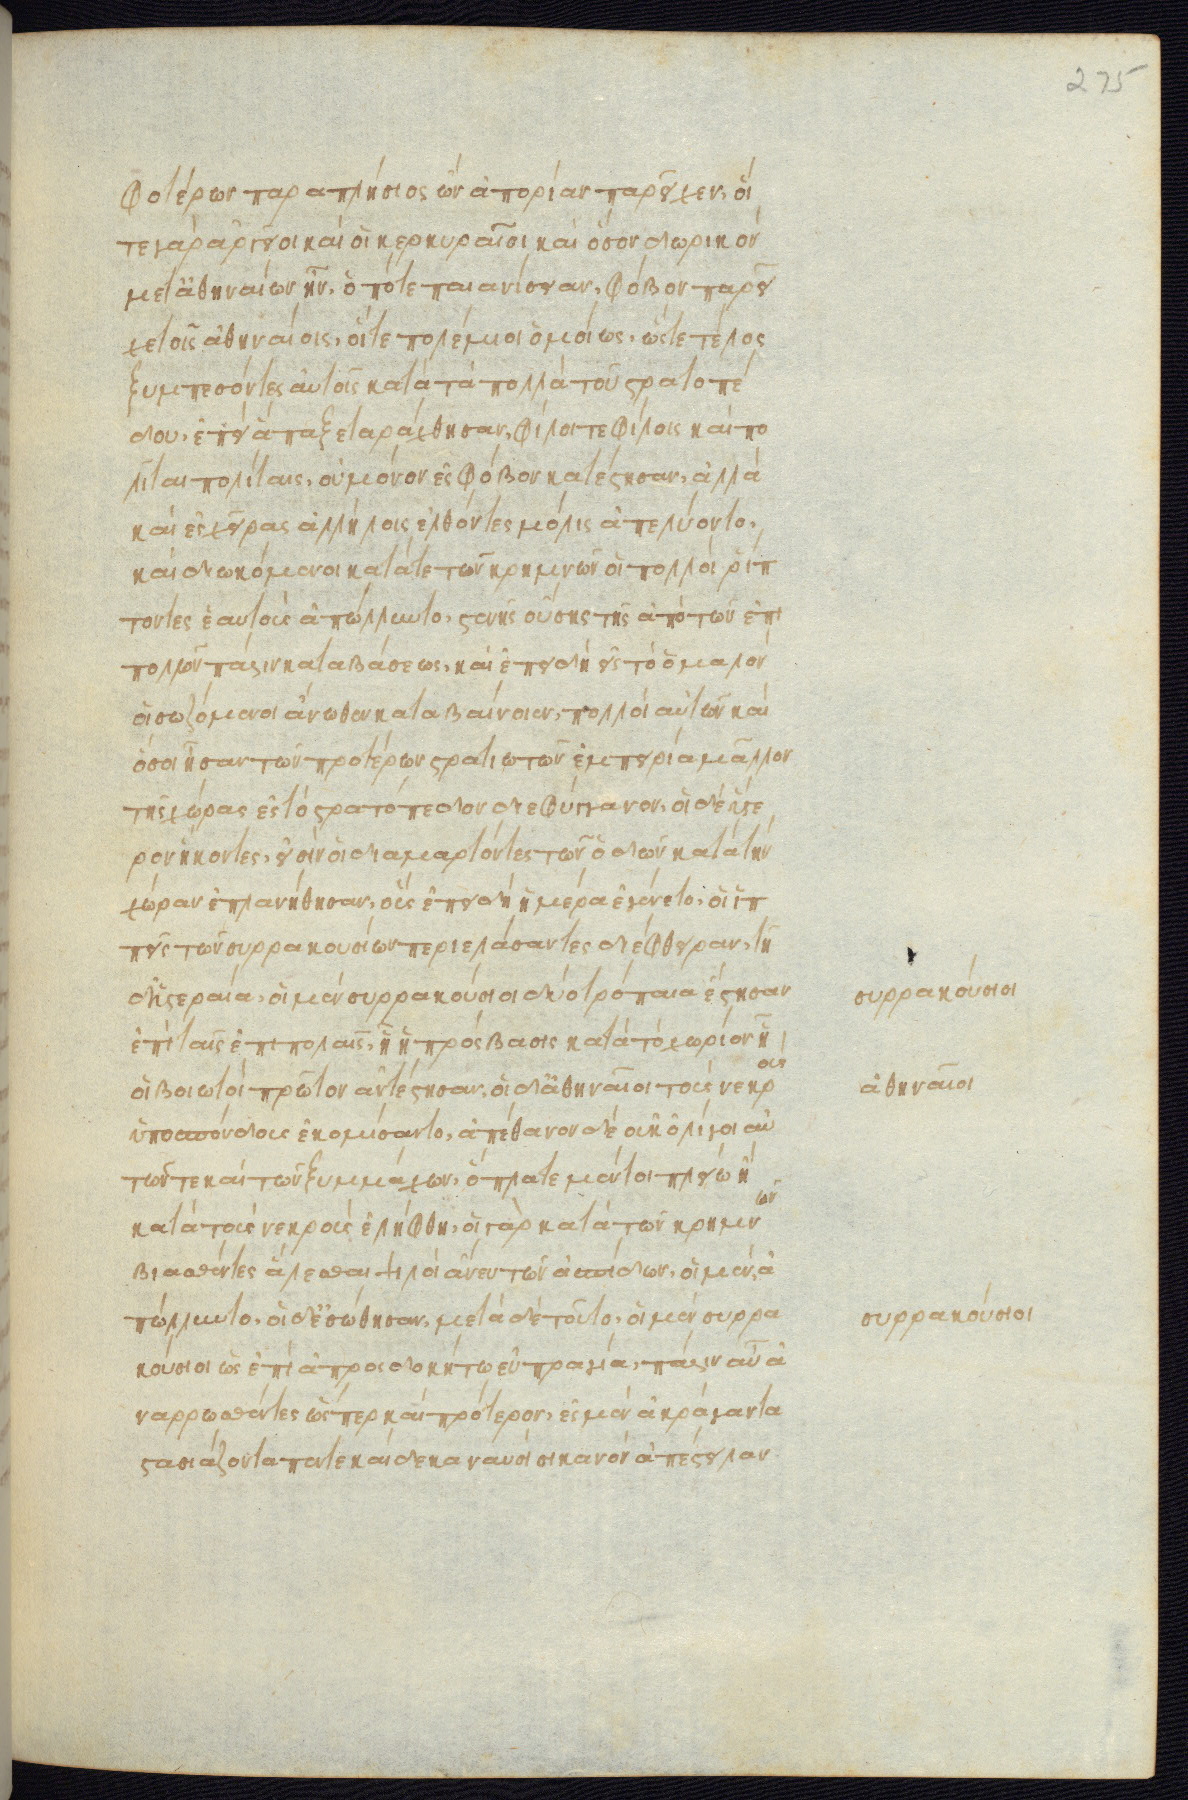 275
φοτέρων παραπλήσιος ὢν ἀπορίαν παρεῖχεν, οἵ
τε γὰρ ἀργεῖοι καὶ οἱ κερκυραῖοι καὶ ὅσον δωρικὸν
μετ' ἀθηναίων ἦν, ὁπότε παιανίσειαν, φόβον παρεῖ
χε τοῖς ἀθηναίοις, οἵ τε πολέμιοι ὁμοίως, ὥστε τέλος
ξυμπεσόντες αὑτοῖς κατὰ τὰ πολλὰ τοῦ στρατοπέ
δου, ἐπεὶ ἅπαξ ἐταράχθησαν, φίλοι τε φίλοις καὶ πο
λῖται πολίταις, οὐ μόνον ἐς φόβον κατέστησαν, ἀλλὰ
καὶ ἐς χεῖρας ἀλλήλοις ἐλθόντες μόλις ἀπελύοντο,
καὶ διωκόμενοι κατά τε τῶν κρημνῶν οἱ πολλοὶ ῥίπ
τοντες ἑαυτοὺς ἀπώλλυντο, στενῆς οὔσης τῆς ἀπὸ τῶν ἐπι
πολῶν πάλιν καταβάσεως, καὶ ἐπειδὴ ἐς τὸ ὁμαλὸν
οἱ σωζόμενοι ἄνωθεν καταβαίνοιεν, πολλοὶ αὐτῶν καὶ
ὅσοι ἦσαν τῶν προτέρων στρατιωτῶν ἐμπειρίᾳ μᾶλλον
τῆς χώρας ἐς τὸ στρατόπεδον διεφύγγανον, οἱ δὲ ὕστε
ρον ἥκοντες, εἰσὶν οἳ διαμαρτόντες τῶν ὁδῶν κατὰ τὴν
χώραν ἐπλανήθησαν, οὓς ἐπειδὴ ἡμέρα ἐγένετο, οἱ ἱπ
πεῖς τῶν συρρακουσίων περιελάσαντες διέφθειραν, τῇ
δ' ὑστεραίᾳ, οἱ μὲν συρρακούσιοι δύο τρόπαια ἔστησαν
συρρακούσιοι
ἐπὶ ταῖς ἐπιπολαῖς, ᾗ ἡ πρόσβασις κατὰ τὸ χωρίον ᾗ
οἱ βοιωτοὶ πρῶτον ἀντέστησαν, οἱ δ' ἀθηναῖοι τοὺς νεκροὺς
ἀθηναῖοι
ὑποσπόνδους ἐκομίσαντο, ἀπέθανον δὲ οὐκ ὀλίγοι αὐ
τῶν τε καὶ τῶν ξυμμάχων, ὅπλα τε μέντοι πλείω ἢ
κατὰ τοὺς νεκροὺς ἐλήφθη, οἱ γὰρ κατὰ τῶν κρημνῶν
βιασθέντες ἅλεσθαι ψιλοὶ ἄνευ τῶν ἀσπίδων, οἱ μὲν ἀ
πώλλυντο, οἱ δ' ἐσώθησαν, μετὰ δὲ τοῦτο, οἱ μὲν συρρα
συρρακούσιοι
κούσιοι ὡς ἐπὶ ἀπροσδοκήτῳ εὐπραγίᾳ, πάλιν αὖ ἀ
ναρρωσθέντες ὥσπερ καὶ πρότερον, ἐς μὲν ἀκράγαντα
στασιάζοντα πεντεκαίδεκα ναυσὶ σικανὸν ἀπέστειλαν